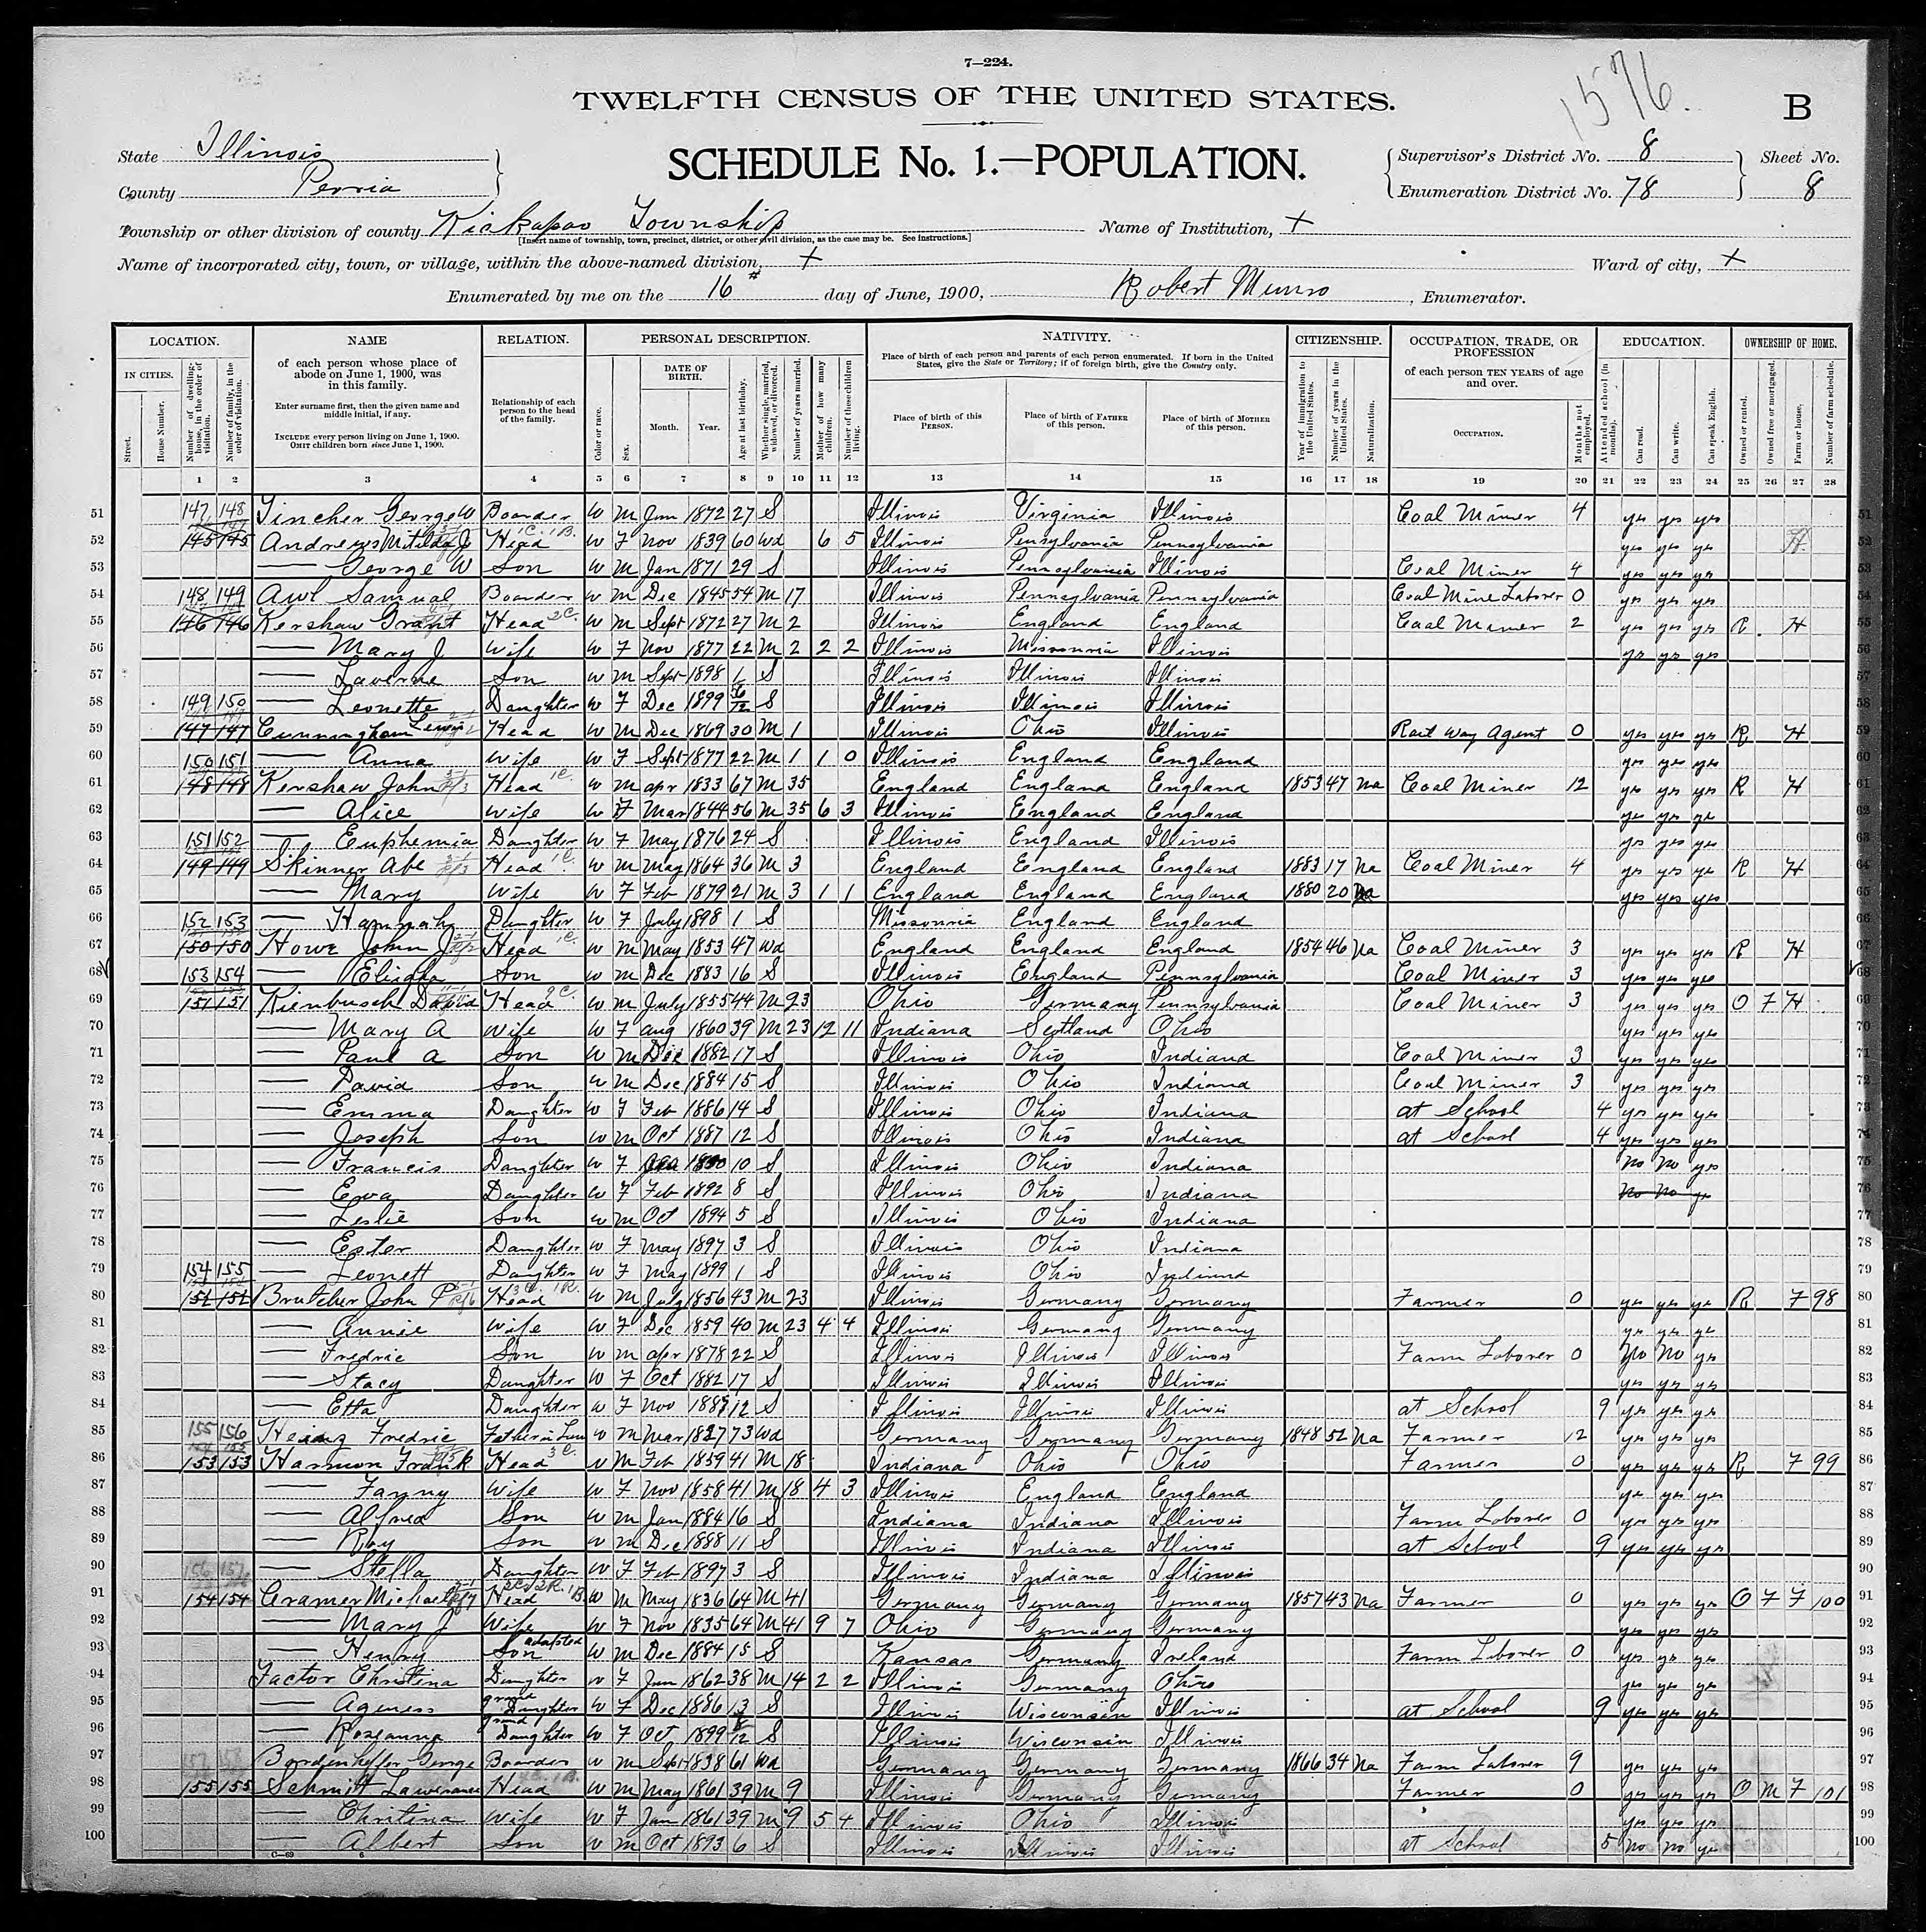 7—224.
1576.
TWELFTH CENSUS OF THE UNITED STATES.
B
State Illinois
County Peoria
SCHEDULE No. 1.—POPULATION.
Supervisor's District No. 8
Enumeration District No. 78
Sheet No. 8
Township or other division of county Kickapoo Township
[Insert name of township, town, precinct, district, or other civil division, as the case may be. See instructions.]
Name of Institution, +
Name of incorporated city, town, or village, within the above-named division, +
Ward of city, +
Enumerated by me on the 16 day of June, 1900, Robert Munro, Enumerator.
LOCATION. NAME RELATION. PERSONAL DESCRIPTION. NATIVITY. CITIZENSHIP. OCCUPATION, TRADE, OR PROFESSION EDUCATION. OWNERSHIP OF HOME.
IN CITIES. Street. House Number. Number of dwelling-house, in the order of visitation. Number of family, in the order of visitation.
of each person whose place of abode on June 1, 1900, was in this family.
Enter surname first, then the given name and middle initial, if any.
INCLUDE every person living on June 1, 1900. OMIT children born since June 1, 1900.
Relationship of each person to the head of the family.
Color or race. Sex. DATE OF BIRTH. Month. Year. Age at last birthday. Whether single, married, widowed, or divorced. Number of years married. Mother of how many children. Number of these children living.
Place of birth of each person and parents of each person enumerated. If born in the United States, give the State or Territory; if of foreign birth, give the Country only.
Place of birth of this PERSON. Place of birth of FATHER of this person. Place of birth of MOTHER of this person.
Year of immigration to the United States. Number of years in the United States. Naturalization.
of each person TEN YEARS of age and over.
OCCUPATION. Months not employed.
Attended school (in months). Can read. Can write. Can speak English.
Owned or rented. Owned free or mortgaged. Farm or house. Number of farm schedule.
1 2 3 4 5 6 7 8 9 10 11 12 13 14 15 16 17 18 19 20 21 22 23 24 25 26 27 28
51 147 148 Tincher George W Boarder W M Jun 1872 27 S Illinois Virginia Illinois Coal Miner 4 yes yes yes 51
52 145 145 Andrews Matilda J Head W F Nov 1839 60 Wd 6 5 Illinois Pensylvania Pennsylvania yes yes yes H 52
53 — George W Son W M Jan 1871 29 S Illinois Pennsylvania Illinois Coal Miner 4 yes yes yes 53
54 148 149 Awl Samual Boarder W M Dec 1845 54 M 17 Illinois Pennsylvania Pennsylvania Coal Mine Laborer 0 yes yes yes 54
55 146 146 Kershaw Grant Head 2C. W M Sept 1872 27 M 2 Illinois England England Coal Miner 2 yes yes yes R H 55
56 — Mary J Wife W F Nov 1877 22 M 2 2 2 Illinois Missouria Illinois yes yes yes 56
57 — Laverne Son W M Sept 1898 1 S Illinois Illinois Illinois 57
58 149 150 — Leonette Daughter W F Dec 1899 6/12 S Illinois Illinois Illinois 58
59 147 147 Cunningham Lewis Head W M Dec 1869 30 M 1 Illinois Ohio Illinois Rail Way Agent 0 yes yes yes R H 59
60 150 151 — Anna Wife W F Sept 1877 22 M 1 1 0 Illinois England England yes yes yes 60
61 148 148 Kershaw John Head 1C. W M Apr 1833 67 M 35 England England England 1853 47 Na Coal Miner 12 yes yes yes R H 61
62 — Alice Wife W F Mar 1844 56 M 35 6 3 Illinois England England yes yes yes 62
63 151 152 — Euphemia Daughter W F May 1876 24 S Illinois England Illinois yes yes yes 63
64 149 149 Skinner Abe Head 1C. W M May 1864 36 M 3 England England England 1883 17 Na Coal Miner 4 yes yes yes R H 64
65 — Mary Wife W F Feb 1879 21 M 3 1 1 England England England 1880 20 Na yes yes yes 65
66 152 153 — Hannah Daughter W F July 1898 1 S Missouria England England 66
67 150 150 Howe John J Head 1C. W M May 1853 47 Wd England England England 1854 46 Na Coal Miner 3 yes yes yes R H 67
68 153 154 — Eligha Son W M Dec 1883 16 S Illinois England Pennsylvania Coal Miner 3 yes yes yes 68
69 151 151 Kienbusch David Head W M July 1855 44 M 23 Ohio Germany Pennsylvania Coal Miner 3 yes yes yes O F H 69
70 — Mary A Wife W F Aug 1860 39 M 23 12 11 Indiana Scotland Ohio yes yes yes 70
71 — Paul A Son W M Dec 1882 17 S Illinois Ohio Indiana Coal Miner 3 yes yes yes 71
72 — David Son W M Dec 1884 15 S Illinois Ohio Indiana Coal Miner 3 yes yes yes 72
73 — Emma Daughter W F Feb 1886 14 S Illinois Ohio Indiana at School 4 yes yes yes 73
74 — Joseph Son W M Oct 1887 12 S Illinois Ohio Indiana at School 4 yes yes yes 74
75 — Francis Daughter W F 1890 10 S Illinois Ohio Indiana No No yes 75
76 — Eva Daughter W F Feb 1892 8 S Illinois Ohio Indiana No No yes 76
77 — Leslie Son W M Oct 1894 5 S Illinois Ohio Indiana 77
78 — Ester Daughter W F May 1897 3 S Illinois Ohio Indiana 78
79 154 155 — Leonett Daughter W F May 1899 1 S Illinois Ohio Indiana 79
80 152 152 Brutcher John P Head 3C. 1R. W M July 1856 43 M 23 Illinois Germany Germany Farmer 0 yes yes yes R F 98 80
81 — Annie Wife W F Dec 1859 40 M 23 4 4 Illinois Germany Germany yes yes yes 81
82 — Fredric Son W M Apr 1878 22 S Illinois Illinois Illinois Farm Laborer 0 No No yes 82
83 — Stacy Daughter W F Oct 1882 17 S Illinois Illinois Illinois yes yes yes 83
84 — Etta Daughter W F Nov 1887 12 S Illinois Illinois Illinois at School 9 yes yes yes 84
85 155 156 Heinz Fredric Father in Law W M Mar 1827 73 Wd Germany Germany Germany 1848 52 Na Farmer 12 yes yes yes 85
86 153 153 Harmon Frank Head 3C. W M Feb 1859 41 M 18 Indiana Ohio Ohio Farmer 0 yes yes yes R F 99 86
87 — Fanny Wife W F Nov 1858 41 M 18 4 3 Illinois England England yes yes yes 87
88 — Alfred Son W M Jan 1884 16 S Indiana Indiana Illinois Farm Laborer 0 yes yes yes 88
89 — Roy Son W M Dec 1888 11 S Illinois Indiana Illinois at School 9 yes yes yes 89
90 156 157 — Stella Daughter W F Feb 1897 3 S Illinois Indiana Illinois 90
91 154 154 Cramer Michael Head W M May 1836 64 M 41 Germany Germany Germany 1857 43 Na Farmer 0 yes yes yes O F F 100 91
92 — Mary J Wife W F Nov 1835 64 M 41 9 7 Ohio Germany Germany yes yes yes 92
93 — Henry Son adopted W M Dec 1884 15 S Kansas Germany Ireland Farm Laborer 0 yes yes yes 93
94 Factor Christina Daughter W F Jun 1862 38 M 14 2 2 Illinois Germany Ohio yes yes yes 94
95 — Ageness grand Daughter W F Dec 1886 13 S Illinois Wisconsin Illinois at School 9 yes yes yes 95
96 — Roseanna grand Daughter W F Oct 1899 S Illinois Wisconsin Illinois 96
97 George Boarder W M Sept 1838 61 Wd Germany Germany Germany 1866 34 Na Farm Laborer 9 yes yes yes 97
98 155 155 Schmitt Lawerance Head W M May 1861 39 M 9 Illinois Germany Germany Farmer 0 yes yes yes O M F 101 98
99 — Christina Wife W F Jan 1861 39 M 9 5 4 Illinois Ohio Illinois yes yes yes 99
100 — Albert Son W M Oct 1893 6 S Illinois Illinois Illinois at School 5 No No yes 100
C—69 6